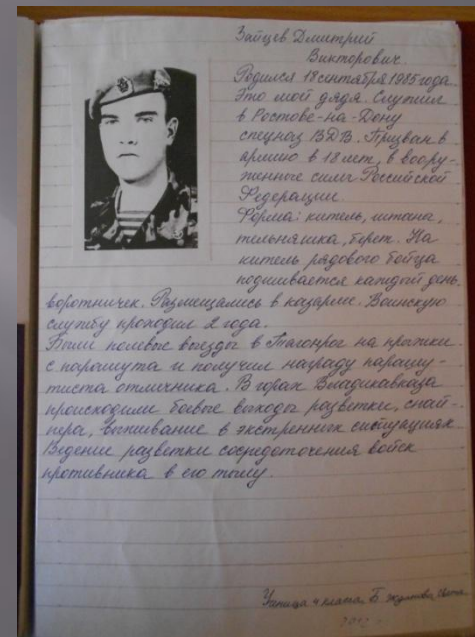 Зайцев Дмитрий
Викторович.
Родился 18 сентября 1985 года.
Это мой дядя. Служил
в Ростове-на-Дону
спецназ ВДВ. Призван в
армию в 18 лет, в воору-
женные силы Российской
Федерации.
Форма: китель, штаны,
тельняшка, берет. На
китель рядового бойца
подшивается каждый день
воротничек. Размещались в казарме. Воинскую
службу проходил 2 года.
Были полевые выезды в Таганрог на прыжки
с парашюта и получил награду парашю-
тиста отличника. В горах Владикавказа
происходили боевые выходы разветки, снай-
пера, выживание в экстренных ситуациях
Ведение разветки сосредоточения войск
противника в его тылу.
Ученица 4 класса Б